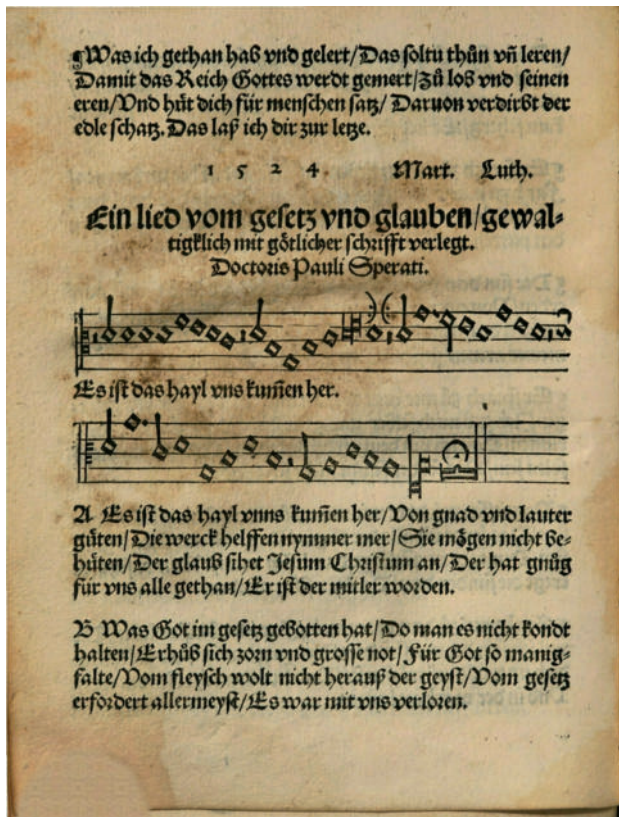 ¶Was ich gethan hab vnd gelert/Das soltu thůn vn̄ leren/
Damit das Reich Gottes werdt gemert/Zů lob vnd seinen
eren/Vnd hüt dich für menschen satz/ Daruon verdirbt der
edle schatz. Das laß ich dir zur letze.
1 5 2 4 Mart. Luth.
Ein lied vom gesetz vnd glauben/gewal⸗
tigklich mit götlicher schrifft verlegt.
Doctoris Pauli Sperati.
Es ist das hayl vns kum̄en her.
A Es ist das hayl vnns kum̄en her/Von gnad vnd lauter
güten/Die werck helffen nymmer mer/Sie mögen nicht be⸗
hüten/Der glaub sihet Jesum Christum an/Der hat gnůg
für vns alle gethan/Er ist der mitler worden.
B Was Got im gesetz gebotten hat/Do man es nicht kondt
halten/Erhůb sich zorn vnd grosse not/Für Got so manig⸗
falte/Vom fleysch wolt nicht herauß der geyst/Vom gesetz
erfordert allermeyst/Es war mit vns verloren.